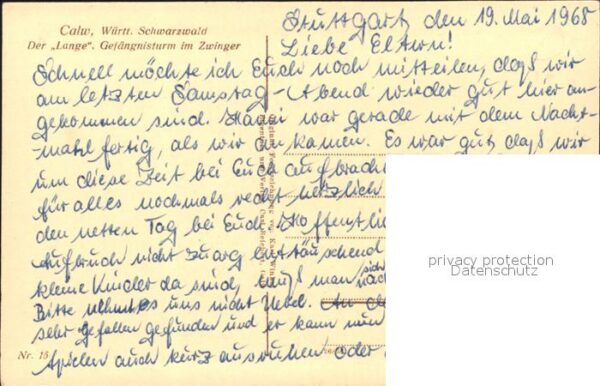 Calw, Württ. Schwarzwald
Der „Lange“. Gefängnisturm im Zwinger
Stuttgart den 19. Mai 1968
Liebe Eltern!
Schnell möchte ich Euch noch mitteilen, daß wir
am letzten Samstag-Abend wieder gut hier an-
gekommen sind. war gerade mit dem Nacht-
mahl fertig, als wir an kamen. Es war gut daß wir
um diese Zeit bei Euch aufbrach
für alles nochmals recht herzlich
den netten Tag bei Euch. Hoffentlic
Aufbruch nicht zu arg enttäuschend
kleine Kinder da sind, muß man sich nach
Bitte uns nicht übel. An de
sehr gefallen gefunden und er kann nun
spielen auch kurz ausruhen oder
Nr. 15
privacy protection
Datenschutz